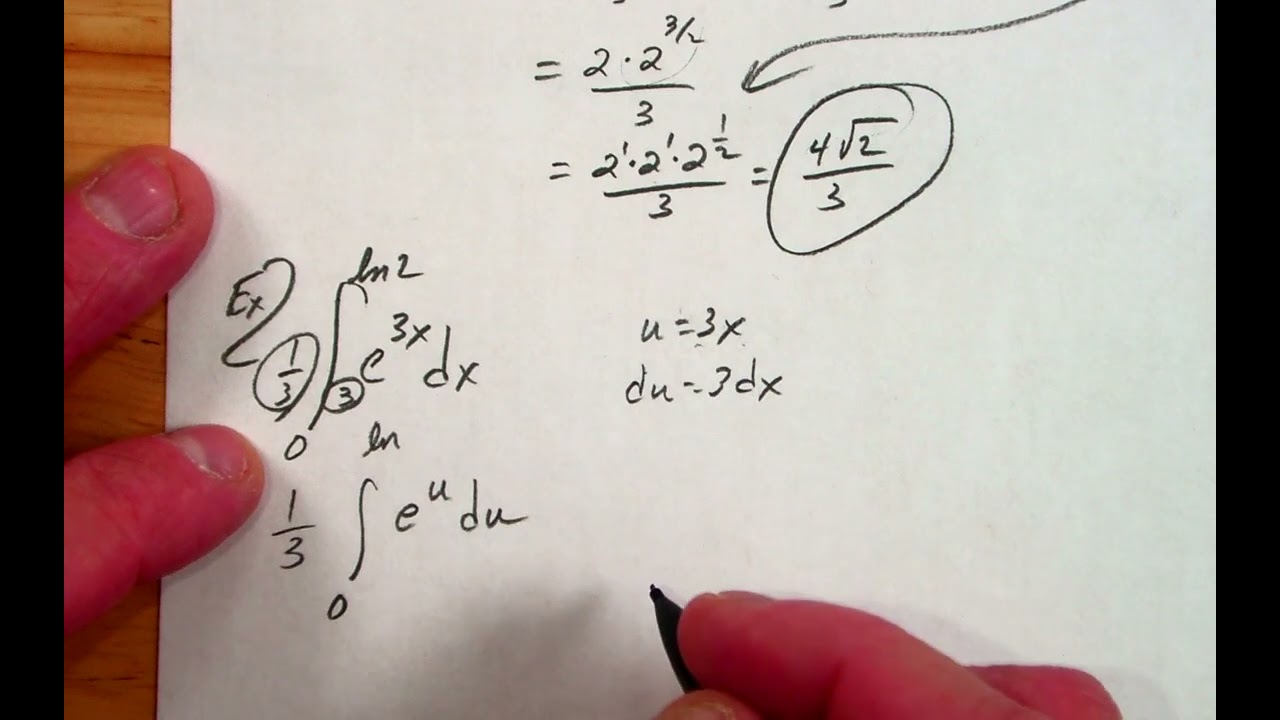 = 2 · 2^{3/2} / 3
= 2^1 · 2^1 · 2^{1/2} / 3 = 4√2 / 3
Ex
1/3 ∫_0^{ln 2} 3 e^{3x} dx
u = 3x
du = 3dx
ln
1/3 ∫_0 e^u du